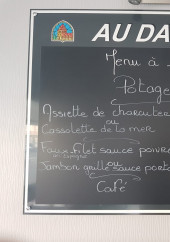 AU DA
Menu à
Potage
Assiette de charcuterie
ou
Cassolette de la mer
Faux-filet sauce poivre
ou
Jambon grillé sauce porto
Café